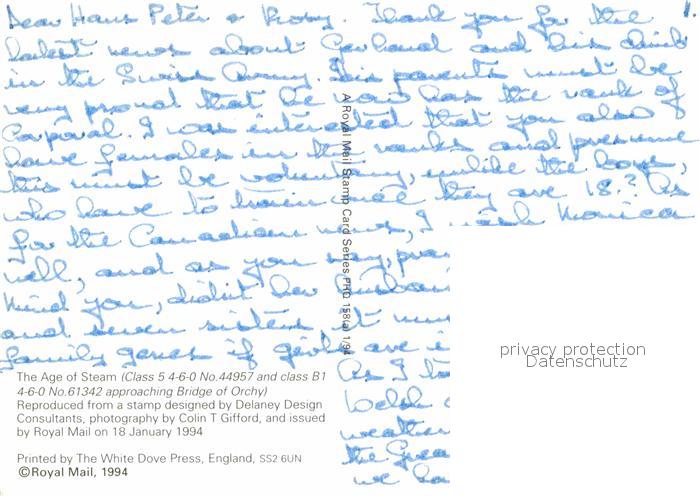 Dear Hans Peter & Thank you for the
latest news about Gerhard and his climb
in the Swiss Army. His parents must be
very proud that he now has the rank of
Corporal. I was interested that you also
have females in the ranks and presume
this must be voluntary, unlike the boys,
who have to train once they are 18.? As
for the Canadian news, I wish Monica
well, and as you say,
mind you, didn't her
and seven sisters. It
family genes if girls are
As I
Welsh
weather
the Great
we
A Royal Mail Stamp Card Series PHQ 158(a) 1/94
privacy protection
Datenschutz
The Age of Steam (Class 5 4-6-0 No.44957 and class B1
4-6-0 No.61342 approaching Bridge of Orchy)
Reproduced from a stamp designed by Delaney Design
Consultants, photography by Colin T Gifford, and issued
by Royal Mail on 18 January 1994
Printed by The White Dove Press, England, SS2 6UN
©Royal Mail, 1994